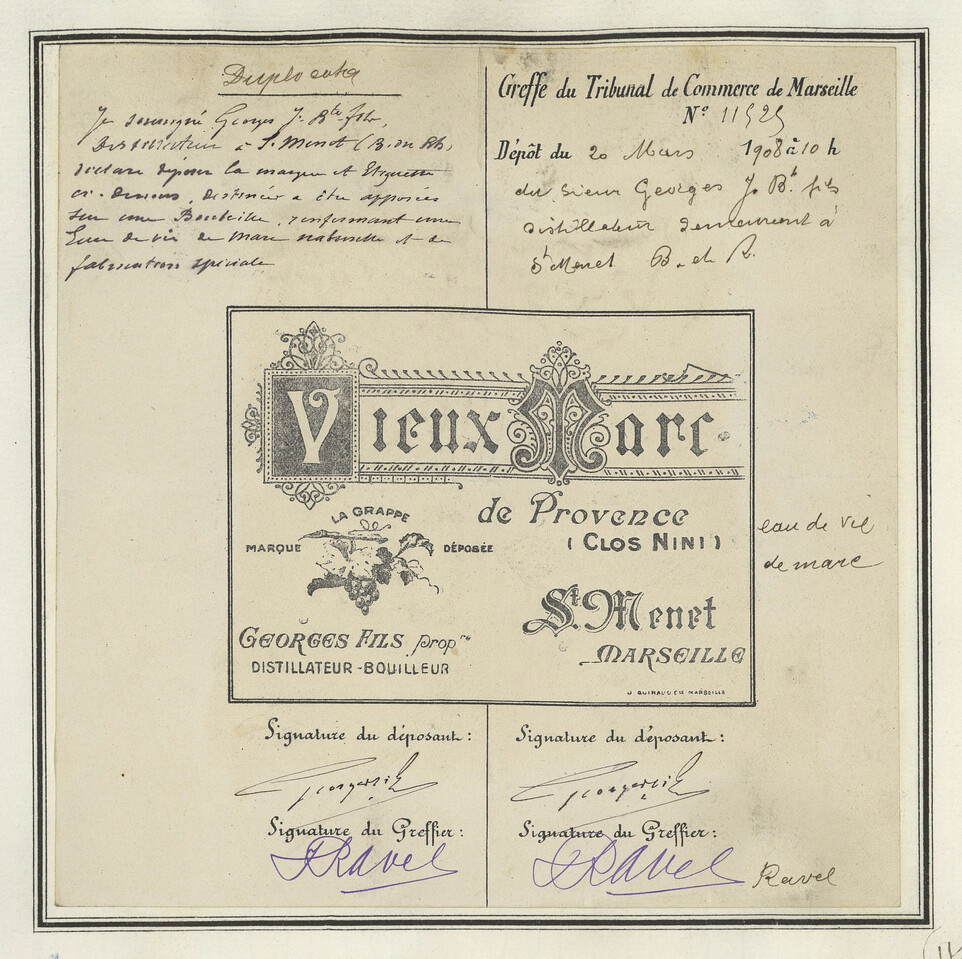 Duplicata
Je soussigné Georges J. Bte fils,
Distillateur à St Menet (B. du Rh)
déclare déposer la marque et Etiquette
ci-dessous, destinée a être apposée
sur une Bouteille, renfermant une
Eau de vie de marc naturelle et de
fabrication spéciale
Greffe du Tribunal de Commerce de Marseille
No 11525
Dépôt du 20 Mars 1908 à 10 h
du sieur Georges J. Bt fils
distillateur demeurant à
St Menet B. d. R.
Vieux Marc
de Provence
(CLOS NINI)
LA GRAPPE
MARQUE DÉPOSÉE
eau de vie
de marc
St. Menet
MARSEILLE
GEORGES FILS Propre
DISTILLATEUR-BOUILLEUR
Signature du déposant:
Georges fils
Signature du Greffier:
Ravel
Signature du déposant:
Georges fils
Signature du Greffier:
Ravel
Ravel